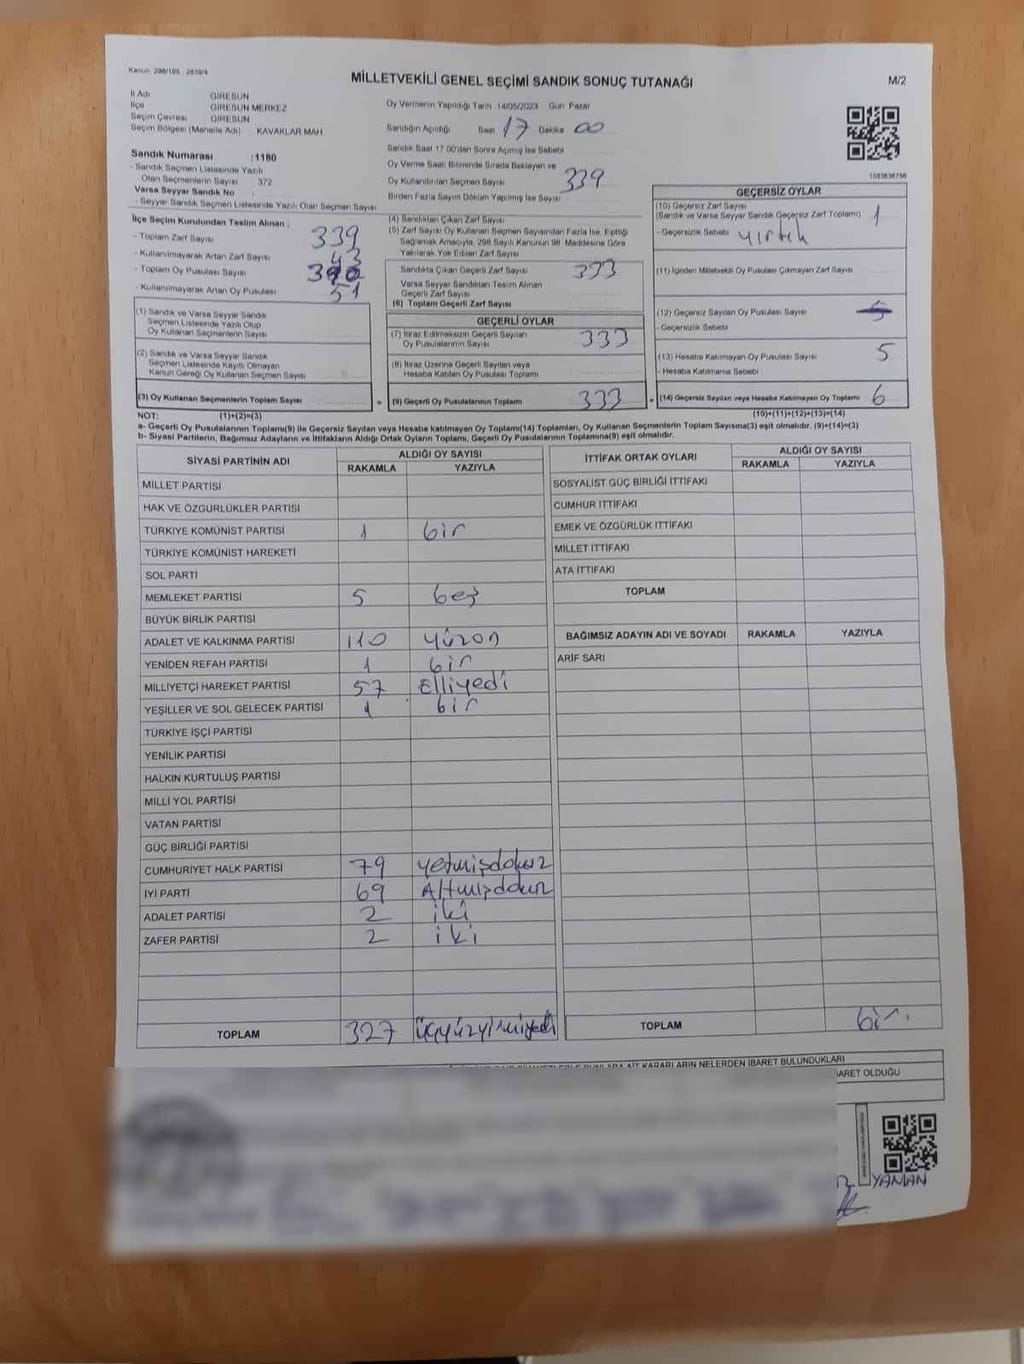 Kanun: 298/105 , 2839/4
MİLLETVEKİLİ GENEL SEÇİMİ SANDIK SONUÇ TUTANAĞI
M/2
İl Adı GİRESUN
İlçe GİRESUN MERKEZ
Seçim Çevresi GİRESUN
Seçim Bölgesi (Mahalle Adı) KAVAKLAR MAH
Sandık Numarası :1180
- Sandık Seçmen Listesinde Yazılı
Olan Seçmenlerin Sayısı 372
Varsa Seyyar Sandık No
- Seyyar Sandık Seçmen Listesinde Yazılı Olan Seçmen Sayısı
Oy Vermenin Yapıldığı Tarih 14/05/2023 Gün Pazar
Sandığın Açıldığı Saat 17 Dakika 00
Sandık Saat 17.00'den Sonra Açılmış İse Sebebi
Oy Verme Saati Bitiminde Sırada Bekleyen ve
Oy Kullandırılan Seçmen Sayısı 339
Birden Fazla Sayım Döküm Yapılmış İse Sayısı
İlçe Seçim Kurulundan Teslim Alınan :
- Toplam Zarf Sayısı 339
- Kullanılmayarak Artan Zarf Sayısı 43
- Toplam Oy Pusulası Sayısı
- Kullanılmayarak Artan Oy Pusulası 51
(1) Sandık ve Varsa Seyyar Sandık
Seçmen Listesinde Yazılı Olup
Oy Kullanan Seçmenlerin Sayısı
(2) Sandık ve Varsa Seyyar Sandık
Seçmen Listesinde Kayıtlı Olmayan
Kanun Gereği Oy Kullanan Seçmen Sayısı
(3) Oy Kullanan Seçmenlerin Toplam Sayısı
(4) Sandıktan Çıkan Zarf Sayısı
(5) Zarf Sayısı Oy Kullanan Seçmen Sayısından Fazla İse, Eşitliği
Sağlamak Amacıyla, 298 Sayılı Kanunun 98. Maddesine Göre
Yakılarak Yok Edilen Zarf Sayısı
Sandıkta Çıkan Geçerli Zarf Sayısı 333
Varsa Seyyar Sandıktan Teslim Alınan
Geçerli Zarf Sayısı
(6) Toplam Geçerli Zarf Sayısı
GEÇERLİ OYLAR
(7) İtiraz Edilmeksizin Geçerli Sayılan
Oy Pusulalarının Sayısı 333
(8) İtiraz Üzerine Geçerli Sayılan veya
Hesaba Katılan Oy Pusulası Toplamı
(9) Geçerli Oy Pusulalarının Toplamı 333
GEÇERSİZ OYLAR
(10) Geçersiz Zarf Sayısı
(Sandık ve Varsa Seyyar Sandık Geçersiz Zarf Toplamı) 1
- Geçersizlik Sebebi yırtık
(11) İçinden Milletvekili Oy Pusulası Çıkmayan Zarf Sayısı
(12) Geçersiz Sayılan Oy Pusulası Sayısı 5
- Geçersizlik Sebebi
(13) Hesaba Katılmayan Oy Pusulası Sayısı 5
- Hesaba Katılmama Sebebi
(14) Geçersiz Sayılan veya Hesaba Katılmayan Oy Toplamı 6
NOT: (1)+(2)=(3) (10)+(11)+(12)+(13)=(14)
a- Geçerli Oy Pusulalarının Toplamı(9) ile Geçersiz Sayılan veya Hesaba Katılmayan Oy Toplamı(14) Toplamları, Oy Kullanan Seçmenlerin Toplam Sayısına(3) eşit olmalıdır. (9)+(14)=(3)
b- Siyasi Partilerin, Bağımsız Adayların ve İttifakların Aldığı Ortak Oyların Toplamı, Geçerli Oy Pusulalarının Toplamına(9) eşit olmalıdır.
SİYASİ PARTİNİN ADI ALDIĞI OY SAYISI
RAKAMLA YAZIYLA
MİLLET PARTİSİ
HAK VE ÖZGÜRLÜKLER PARTİSİ
TÜRKİYE KOMÜNİST PARTİSİ 1 bir
TÜRKİYE KOMÜNİST HAREKETİ
SOL PARTİ
MEMLEKET PARTİSİ 5 beş
BÜYÜK BİRLİK PARTİSİ
ADALET VE KALKINMA PARTİSİ 110 yüzon
YENİDEN REFAH PARTİSİ 1 bir
MİLLİYETÇİ HAREKET PARTİSİ 57 Elliyedi
YEŞİLLER VE SOL GELECEK PARTİSİ 1 bir
TÜRKİYE İŞÇİ PARTİSİ
YENİLİK PARTİSİ
HALKIN KURTULUŞ PARTİSİ
MİLLİ YOL PARTİSİ
VATAN PARTİSİ
GÜÇ BİRLİĞİ PARTİSİ
CUMHURİYET HALK PARTİSİ 79 yetmişdokuz
İYİ PARTİ 69 Altmışdokuz
ADALET PARTİSİ 2 iki
ZAFER PARTİSİ 2 iki
TOPLAM 327 üçyüzyirmiyedi
İTTİFAK ORTAK OYLARI ALDIĞI OY SAYISI
RAKAMLA YAZIYLA
SOSYALİST GÜÇ BİRLİĞİ İTTİFAKI
CUMHUR İTTİFAKI
EMEK VE ÖZGÜRLÜK İTTİFAKI
MİLLET İTTİFAKI
ATA İTTİFAKI
TOPLAM
BAĞIMSIZ ADAYIN ADI VE SOYADI RAKAMLA YAZIYLA
ARİF SARI
TOPLAM bir.
KARARLARIN NELERDEN İBARET BULUNDUKLARI
İBARET OLDUĞU
YAMAN